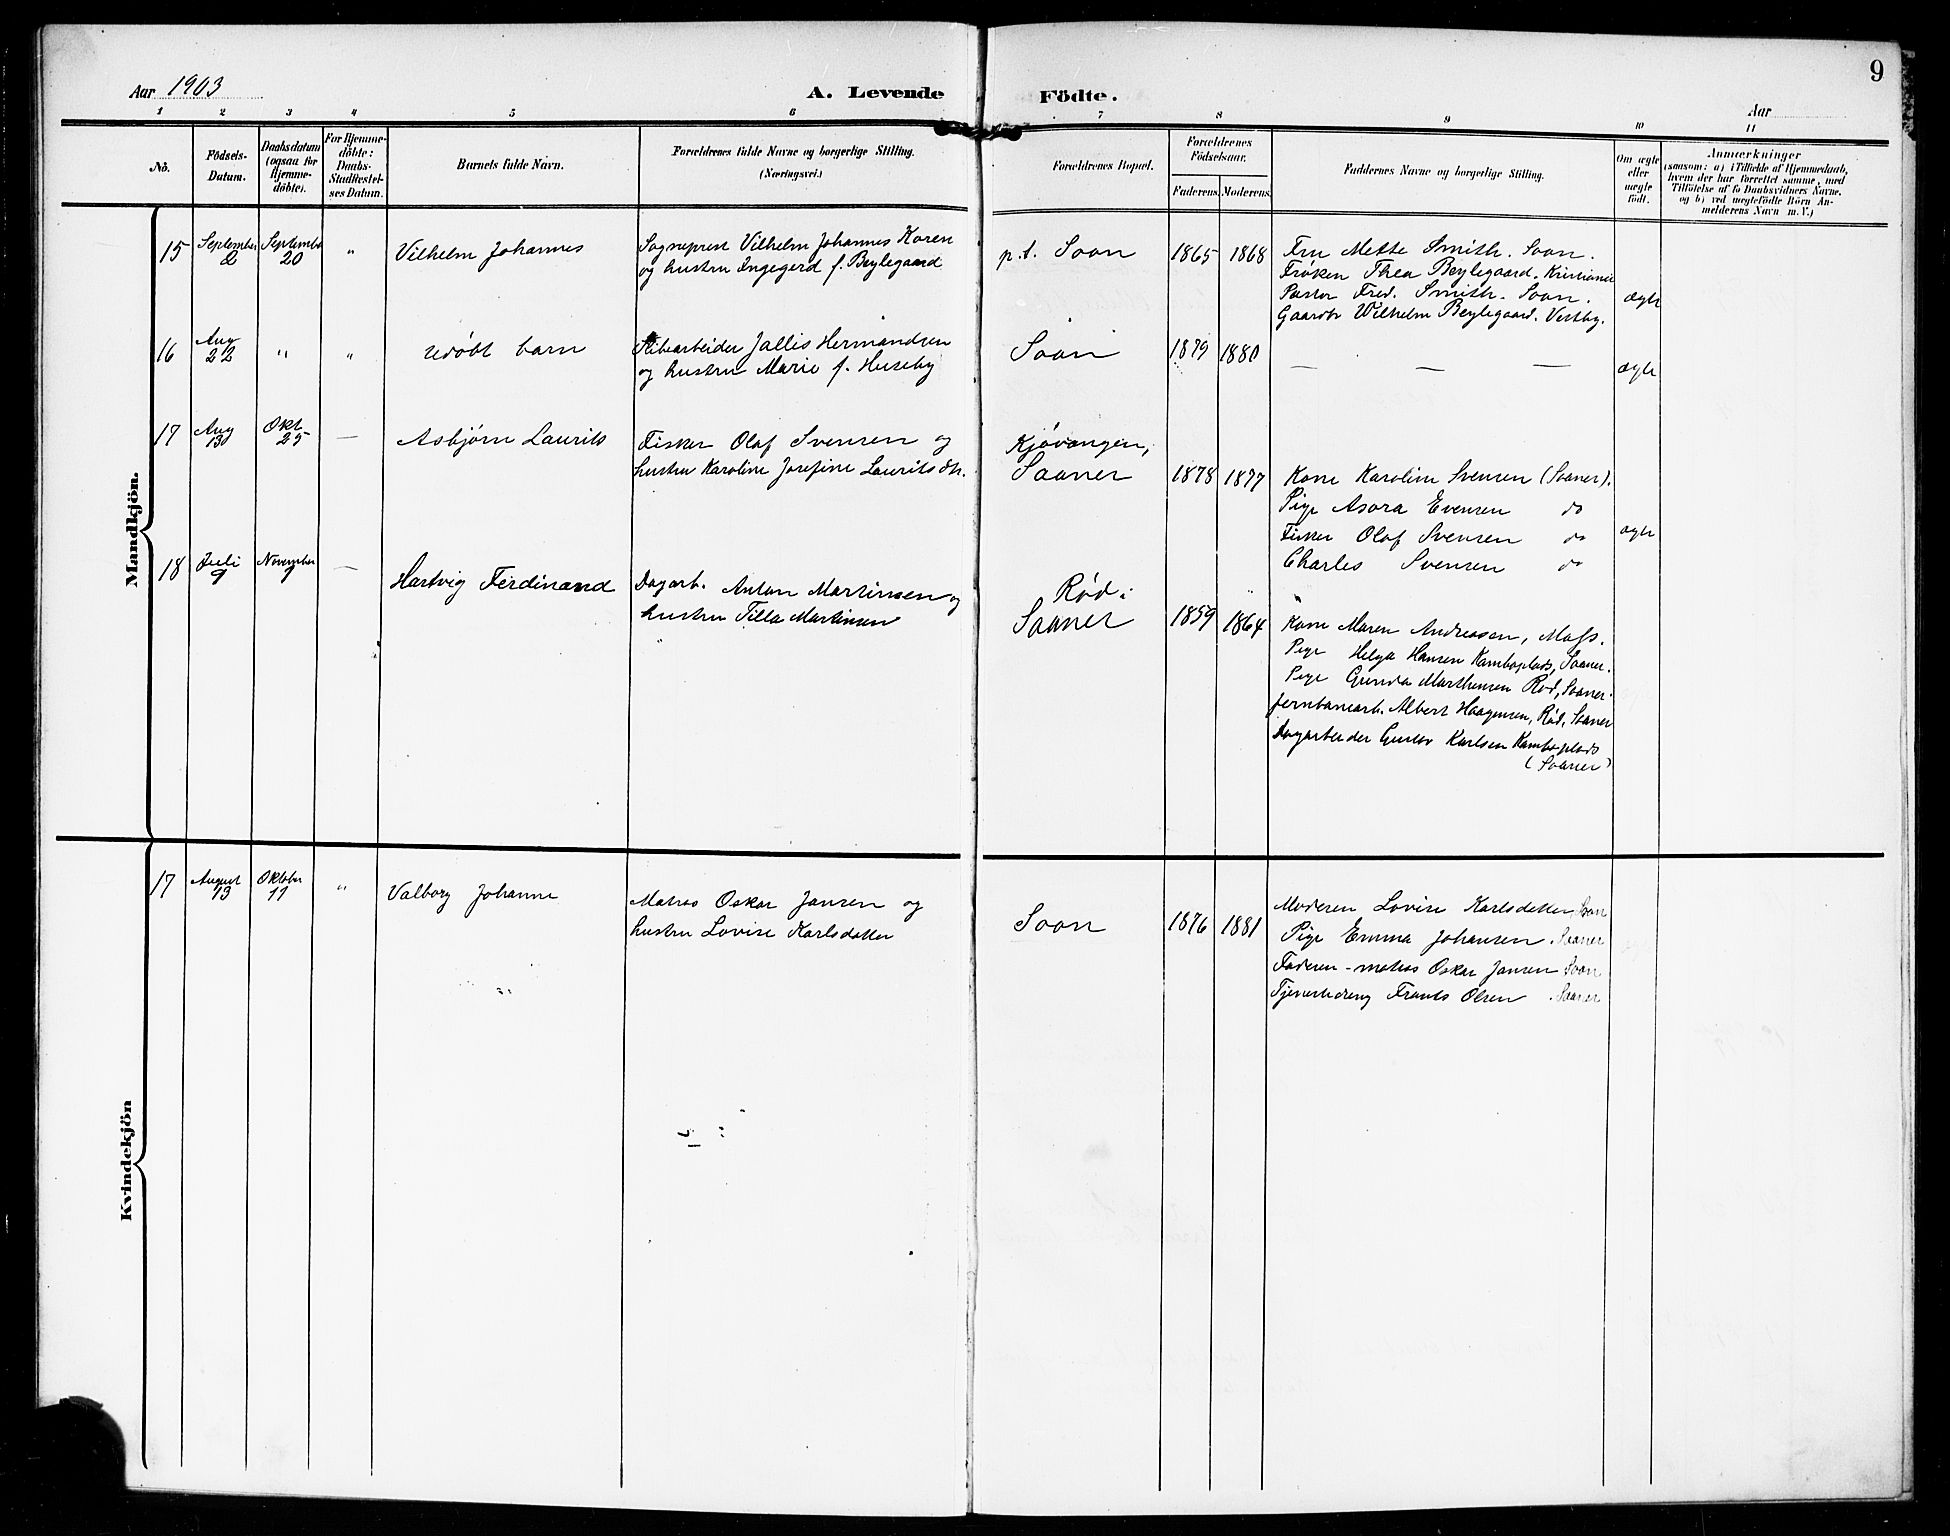 9
Aar 1903
A. Levende Födte.
Aar
1 2 3 4 5 6 7 8 9 10 11
No.
Födsels-Datum.
Daabsdatum (ogsaa for Hjemme-döbte).
For Hjemme-döbte: Daabs-Stadfæstel-ses Datum.
Barnets fulde Navn.
Forældrenes fulde Navne og borgerlige Stilling.
(Næringsvei.)
Forældrenes Bopæl.
Forældrenes Födselsaar.
Faderens. Moderens.
Faddernes Navne og borgerlige Stilling.
Om ægte eller uægte födt.
Anmærkninger
(saasom: a) i Tilfælde af Hjemmedaab,
hvem der har forrettet samme, med
Tilföielse af to Daabsvidners Navne,
og b) ved uægtefödte Börn An-
melderens Navn m. V.)
Mandkjön.
15 September 2 September 20 " Vilhelm Johannes
Sogneprest Vilhelm Johannes Koren
og hustru Ingegerd f. Beylegaard
p.t. Soon 1865 1868
Fru Mette Smith. Soon.
Frøken Thea Beylegaard. Kristiania
Pastor Fred. Smith. Soon.
Gaardbr Wilhelm Beylegaard. Vestby.
ægte
16 Aug 22 " " udøbt barn
Hermansen
og hustru Marie f. Huseby
Soon 1879 1880
— — —
ægte
17 Aug 13 Okt 25 — Asbjørn Laurits
Fisker Olaf Svensen og
hustru Karoline Josefine Lauritsdtr.
Kjøvangen,
Saaner 1878 1877
Kone Karoline Svensen (Saaner).
Pige Asora Evensen do
Fisker Olaf Svensen do
Charles Svensen do
ægte
18 Juli 9 November — Hartvig Ferdinand
Dagarb. Anton Martinsen og
hustru Tilla Martinsen
Rød i
Saaner 1859 1864
Kone Maren Andreasen, Moss.
Pige Helga Hansen Kamboplads, Saaner.
Pige Gunda Marthinsen Rød, Saaner.
Jernbanearb. Albert Haagensen, Rød, Saaner
Dagarbeider Gustav Karlsen Kamboplads
(Saaner)
Kvindekjön
17 August 13 Oktober 11 " Valborg Johanne
Matros Oskar Jansen og
hustru Lovise Karlsdatter
Soon 1876 1881
Moderen Lovise Karlsdatter, Soon
Pige Emma Johansen. Saaner
Faderen - matros Oskar Jansen Soon
Tjenestedreng Frants Olsen. Saaner